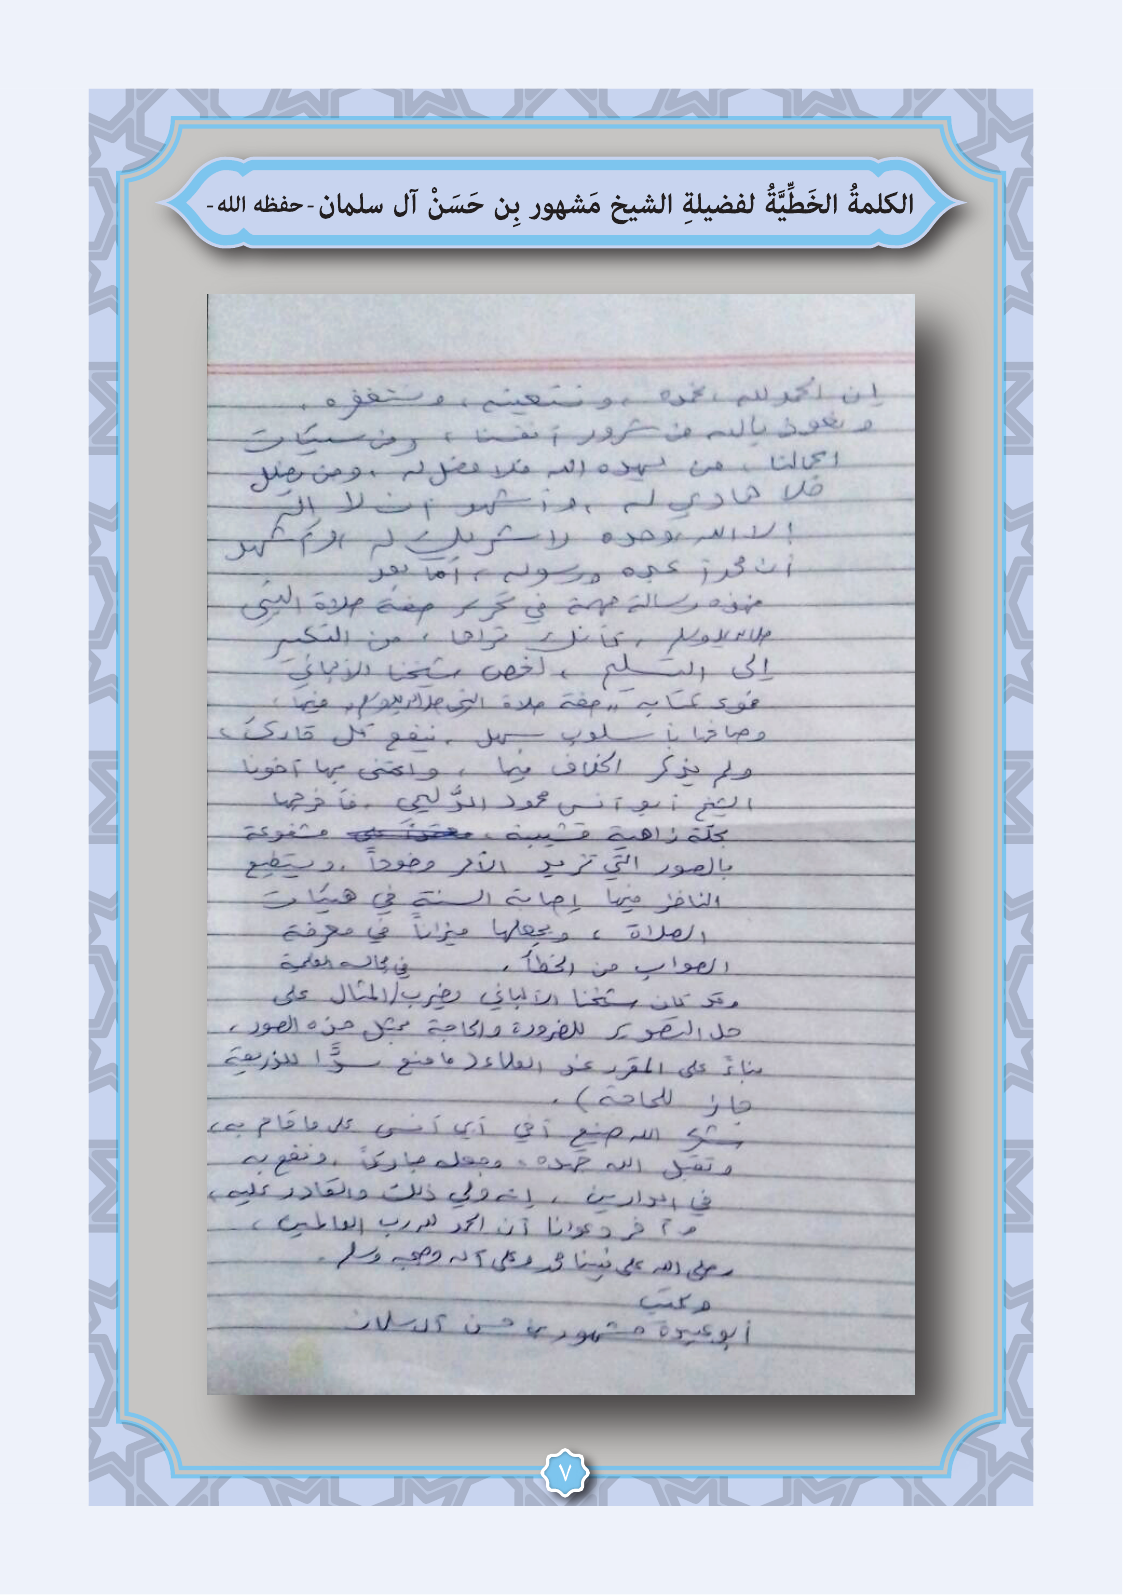 الكلمةُ الخَطِّيَّةُ لفضيلةِ الشيخ مَشهور بِن حَسَنْ آل سلمان -حفظه الله-
إن الحمد لله، نحمده، ونستعينه، ونستغفره،
ونعوذ بالله من شرور أنفسنا، ومن سيئات
أعمالنا، من يهده الله فلا مضل له، ومن يضلل
فلا هادي له، وأشهد أن لا إله
إلا الله وحده لا شريك له، وأشهد
أن محمداً عبده ورسوله، أما بعد
فهذه رسالة مهمة في تحرير صفة صلاة النبي
صلى الله عليه وسلم، كأنك تراها، من التكبير
إلى التسليم، لخص شيخنا الألباني
فحوى كتابه "صفة صلاة النبي صلى الله عليه وسلم" فيها،
وصاغها بأسلوب سهل، ينفع كل قارئ،
ولم يذكر الخلاف فيها، واعتنى بها أخونا
الشيخ أبو أنس محمود، فأخرجها
بحلّة زاهية قشيبة، مشفوعة
بالصور التي تزيد الأمر وضوحاً، ويستطيع
الناظر فيها إصابة السنة في هيئات
الصلاة، ويجعلها ميزاناً في معرفة
الصواب من الخطأ.
في مجالسه العلمية
وقد كان شيخنا الألباني يضرب المثال على
حل التصوير للضرورة والحاجة بمثل هذه الصور،
بناءً على المقرر عند العلماء (ما منع سدًّا للذريعة
جاز للحاجة).
شكر الله صنيع أخي أبي أنس على ما قام به،
وتقبل الله جهده، وجعله مباركاً، ونفع به
في الدارين، إنه ولي ذلك والقادر عليه،
وآخر دعوانا أن الحمد لله رب العالمين،
وصلى الله على نبينا محمد وعلى آله وصحبه وسلم.
وكتب
أبو عبيدة مشهور بن حسن آل سلمان
٧